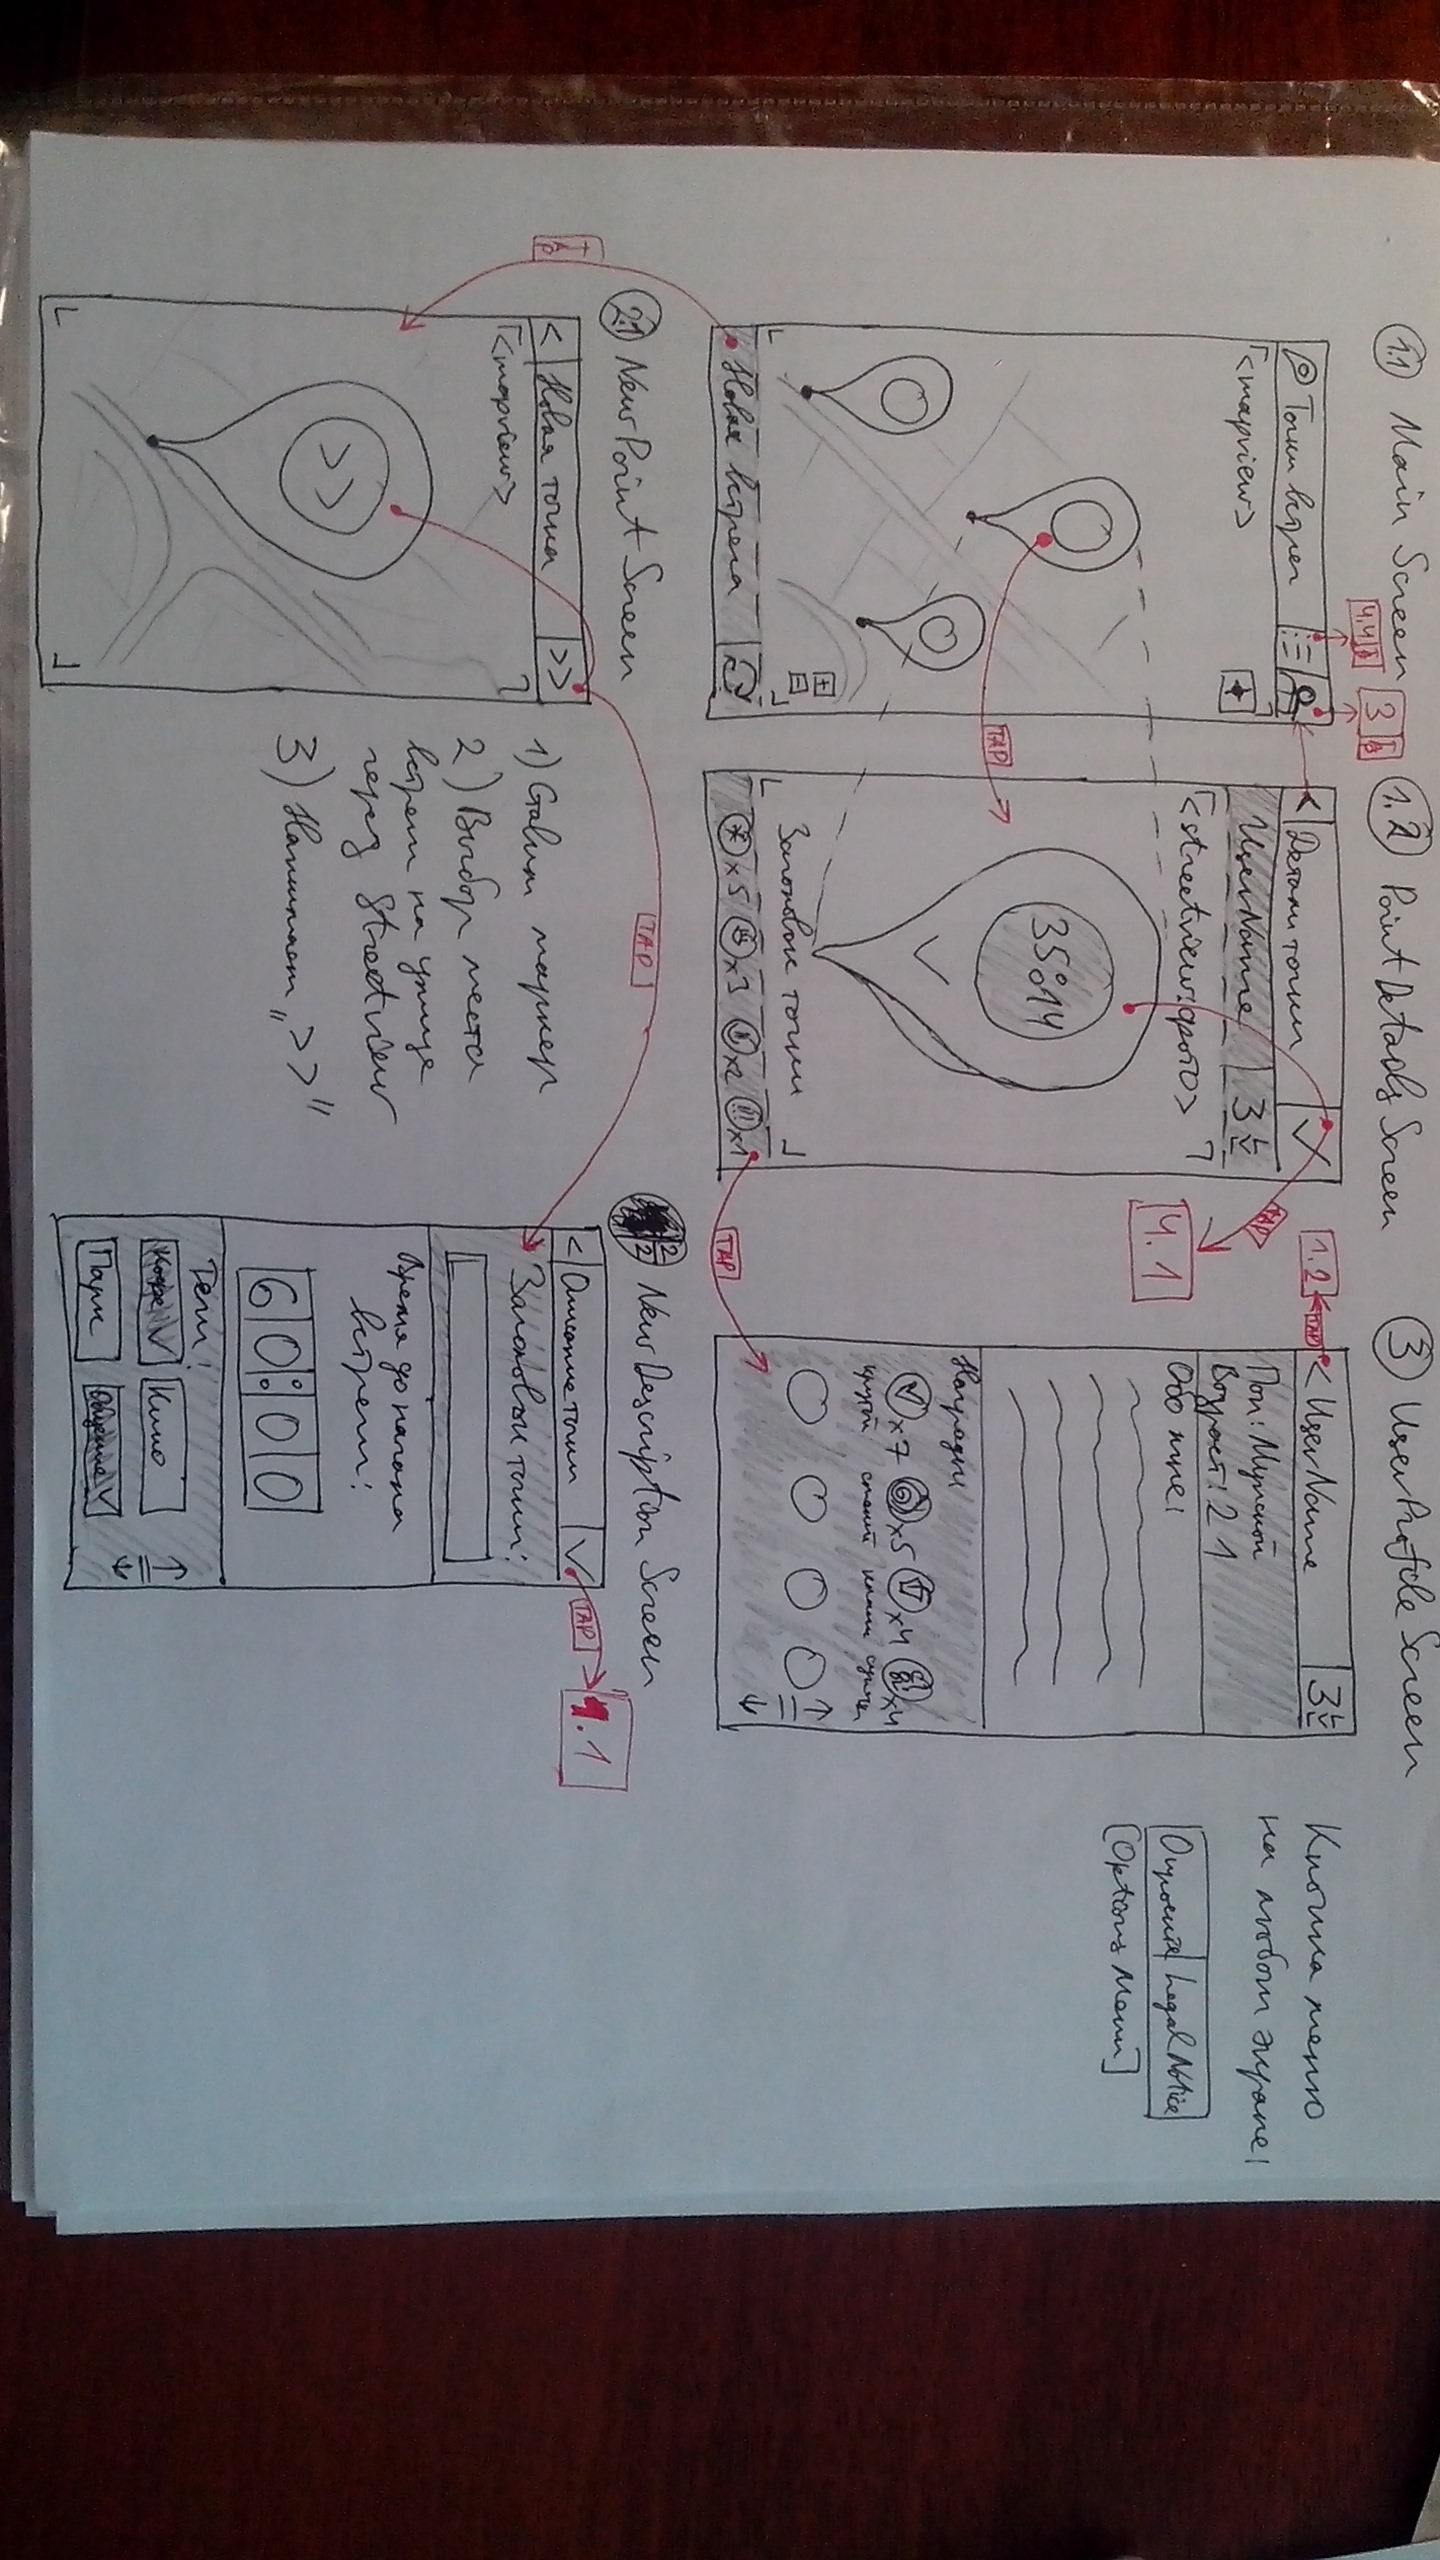 1.1 Main Screen
4.4 TAP
3 TAP
Точки встреч
<mapview>
+
-
Новая встреча
TAP
TAP
1.2 PointDetailsScreen
< Детали точки
UserName 3
<streetview:фото>
35:14
Заголовок точки
x5 x3 x2 x1
TAP
4.1
TAP
3 UserProfileScreen
1.2 TAP
< UserName 3
Пол: Мужской
Возраст: 21
Обо мне:
Награды
x7 x5 x4 x4
крутой
Кнопка меню
на любом экране:
Legal Notice
[Options Menu]
2.1 NewPointScreen
< Новая точка >>
<mapview>
>>
TAP
1) маркер
2) Выбор места
встречи на улице
через Streetview
3) Нажимает „>>"
2.2 NewDescription Screen
< Описание точки
TAP
4.1
Заголовок точки:
Время до начала
встречи:
60:00
Теги:
Кофе Кино
Парк Общение